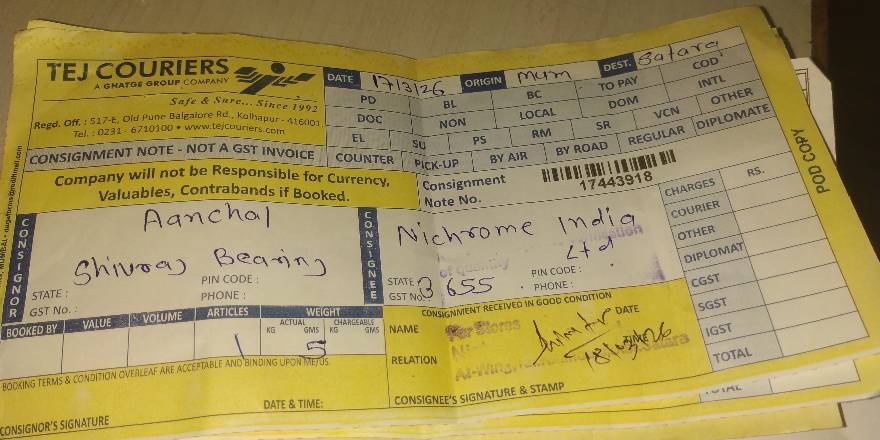 TEJ COURIERS
A GHATGE GROUP COMPANY
Safe & Sure... Since 1992
Regd. Off. : 517-E, Old Pune Balgalore Rd., Kolhapur - 416001
Tel. : 0231 - 6710100 • www.tejcouriers.com
CONSIGNMENT NOTE - NOT A GST INVOICE
Company will not be Responsible for Currency,
Valuables, Contrabands if Booked.
DATE 17/3/26 ORIGIN Mum DEST. Satara
PD BL BC TO PAY COD
DOC NON LOCAL DOM INTL
EL SU PS RM SR VCN OTHER
COUNTER PICK-UP BY AIR BY ROAD REGULAR DIPLOMATE
Consignment
Note No.
17443918
POD COPY
CONSIGNOR
Aanchal
Shivraj Bearing
STATE : PIN CODE :
GST No. : PHONE :
CONSIGNEE
Nichrome India
Ltd
of quantity
STATE PIN CODE :
GST No. PHONE :
3655
CHARGES RS.
COURIER
OTHER
DIPLOMAT
CGST
SGST
IGST
TOTAL
BOOKED BY VALUE VOLUME ARTICLES WEIGHT
ACTUAL CHARGEABLE
KG GMS KG GMS
1 5
BOOKING TERMS & CONDITION OVERLEAF ARE ACCEPTABLE AND BINDING UPON ME/US.
CONSIGNOR'S SIGNATURE DATE & TIME:
CONSIGNMENT RECEIVED IN GOOD CONDITION
NAME DATE
For Stores
RELATION
18/03/26
CONSIGNEE'S SIGNATURE & STAMP
TOTAL